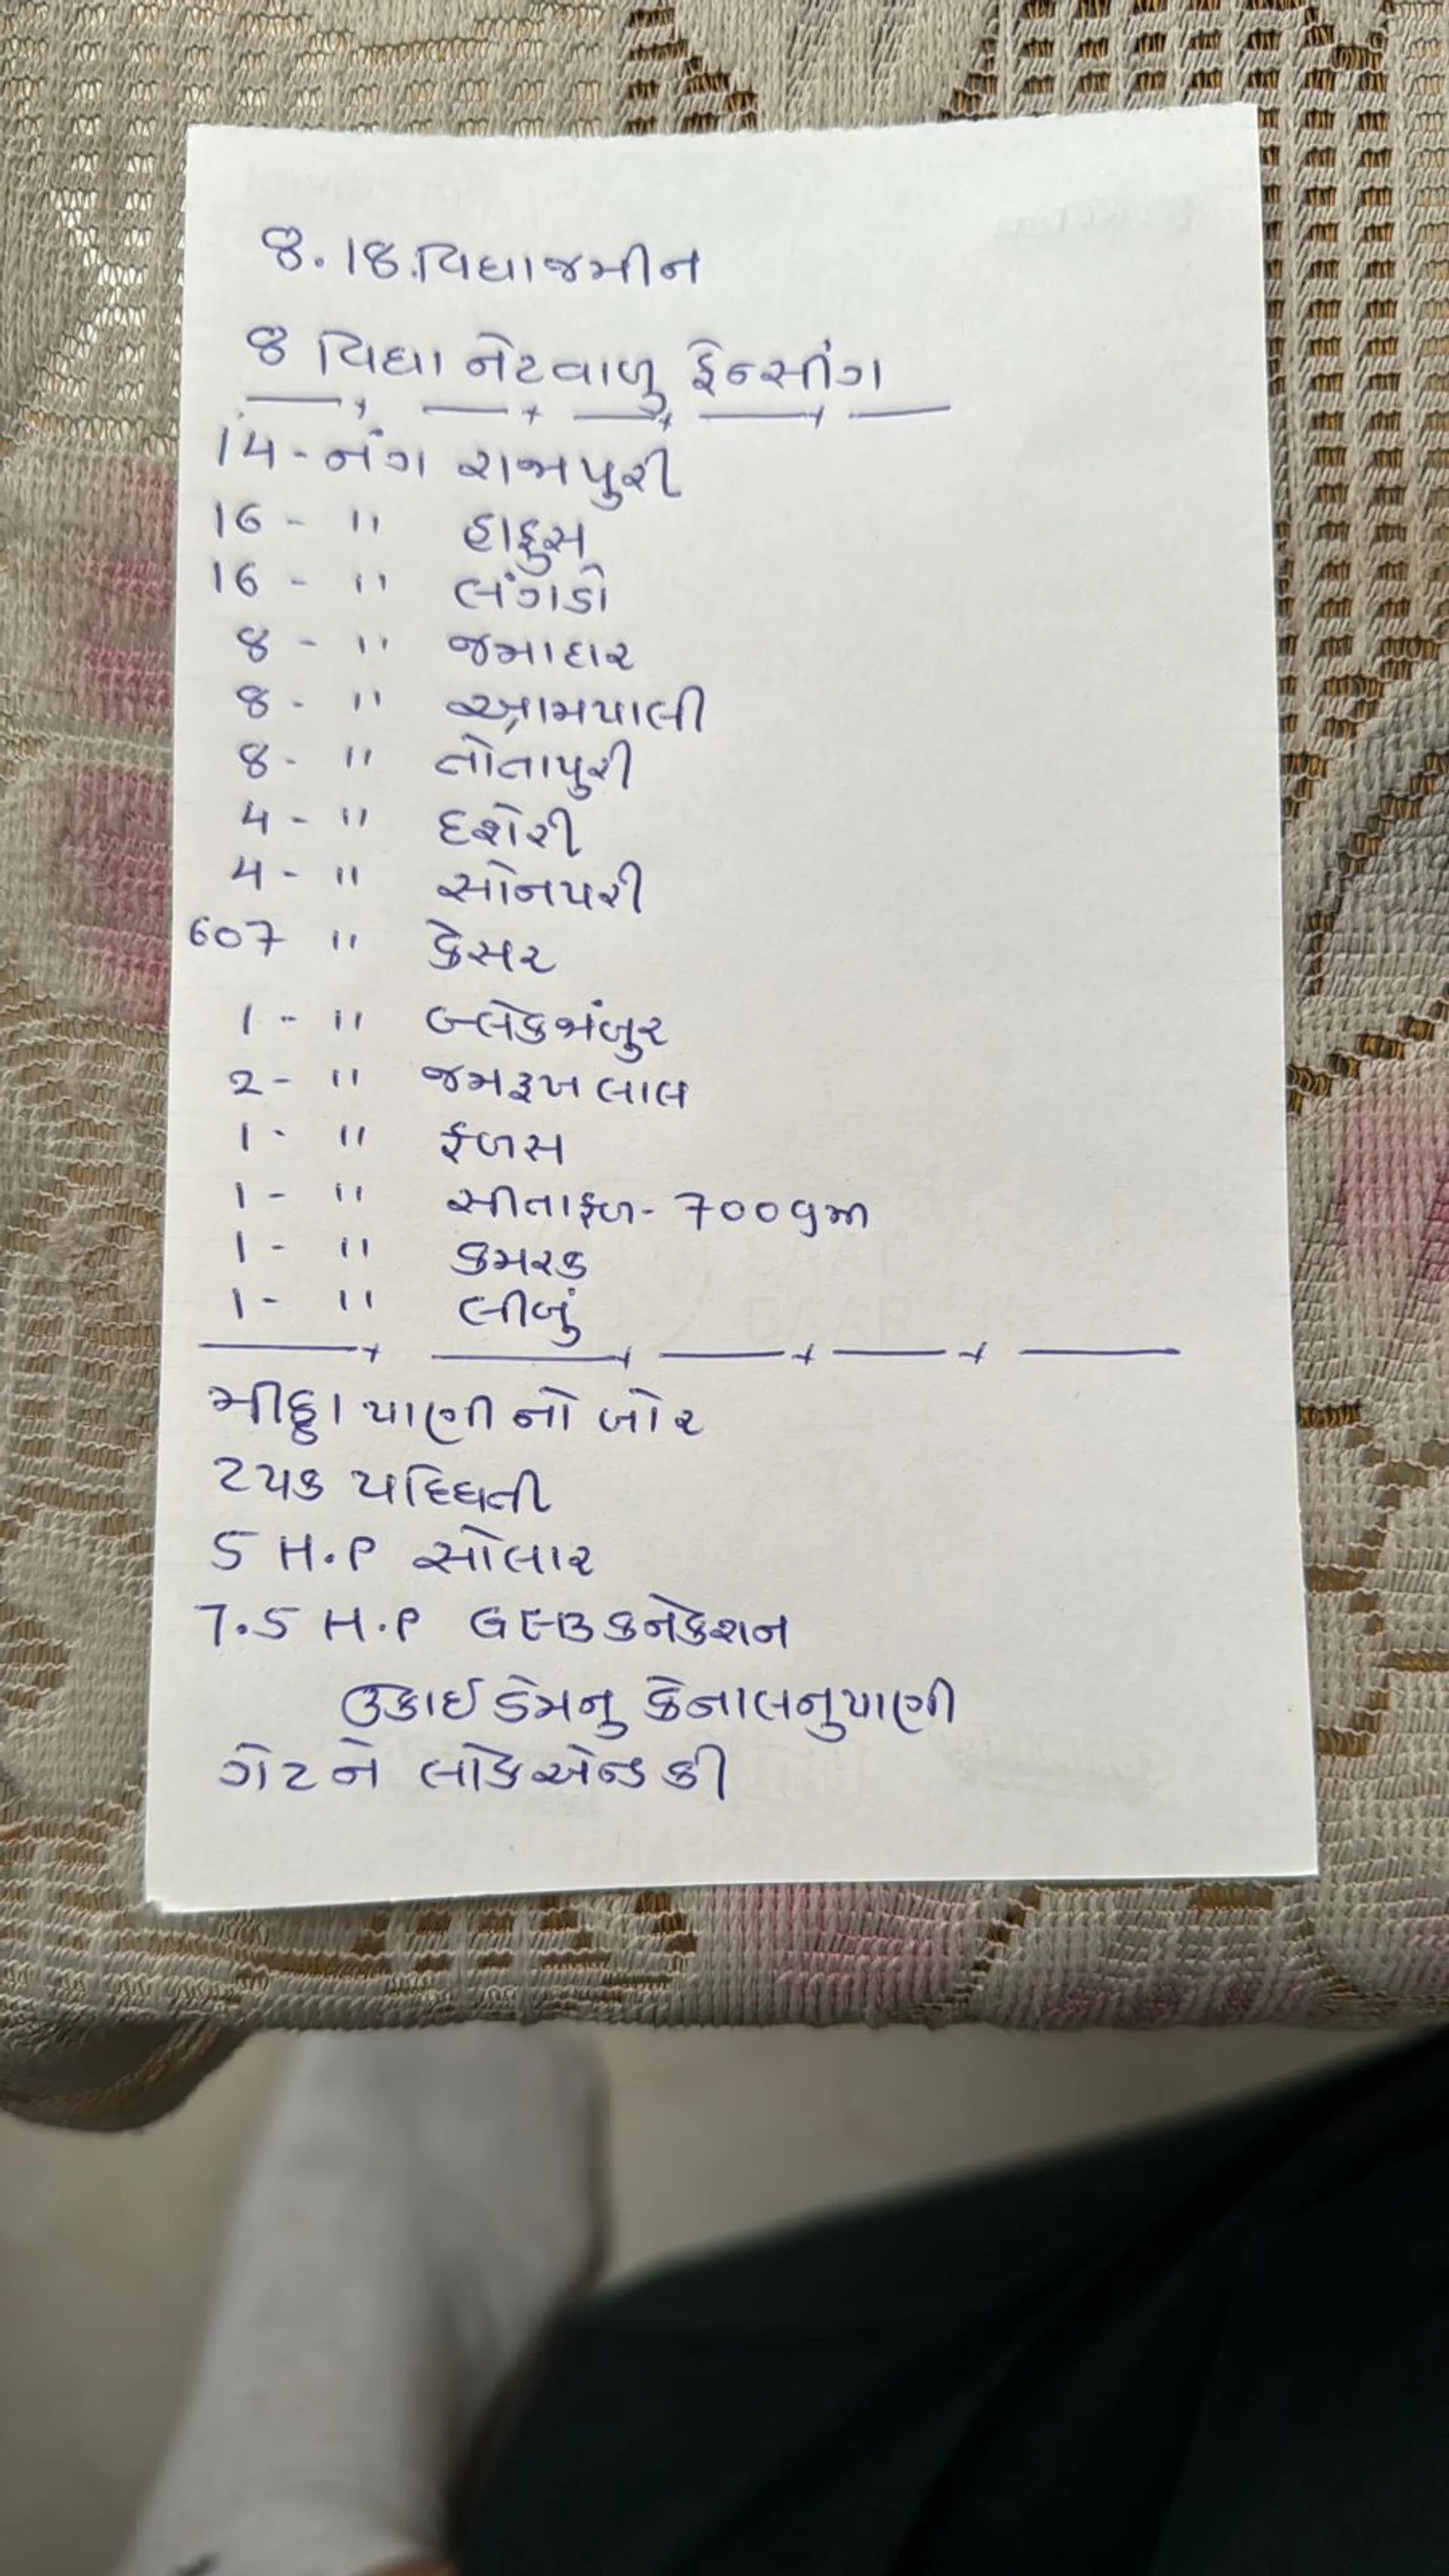 8.18.વિઘા જમીન
8 વિઘા નેટવાળુ ફેન્સીંગ
14 - નંગ રાજાપુરી
16 - " હાફુસ
16 - " લંગડો
8 - " જમાદાર
8 - " આમ્રપાલી
8 - " તોતાપુરી
4 - " દશેરી
4 - " સોનપરી
607 " કેસર
1 - " બ્લેકજાંબુર
2 - " જમરૂખ લાલ
1 - " ફણસ
1 - " સીતાફળ - 700gm
1 - " કમરક
1 - " લીબું
મીઠ્ઠા પાણી નો બોર
ટપક પધ્ધિતી
5 H.P સોલાર
7.5 H.P GEB કનેકેશન
ઉકાઈ ડેમનુ કેનાલનુ પાણી
ગેટ ને લોક એન્ડ કી